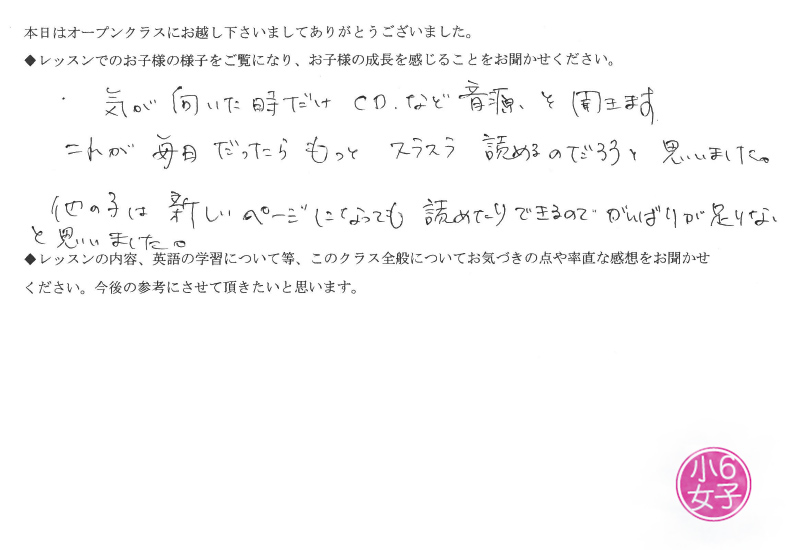 本日はオープンクラスにお越し下さいましてありがとうございました。
◆レッスンでのお子様の様子をご覧になり、お子様の成長を感じることをお聞かせください。
・気が向いた時だけ CD.など音源、を聞きます
これが毎日だったらもっと スラスラ 読めるのだろうと思いました。
他の子は新しいページになっても読めたりできるのでがんばりが足りない
と思いました。
◆レッスンの内容、英語の学習について等、このクラス全般についてお気づきの点や率直な感想をお聞かせ
ください。今後の参考にさせて頂きたいと思います。
小6
女子